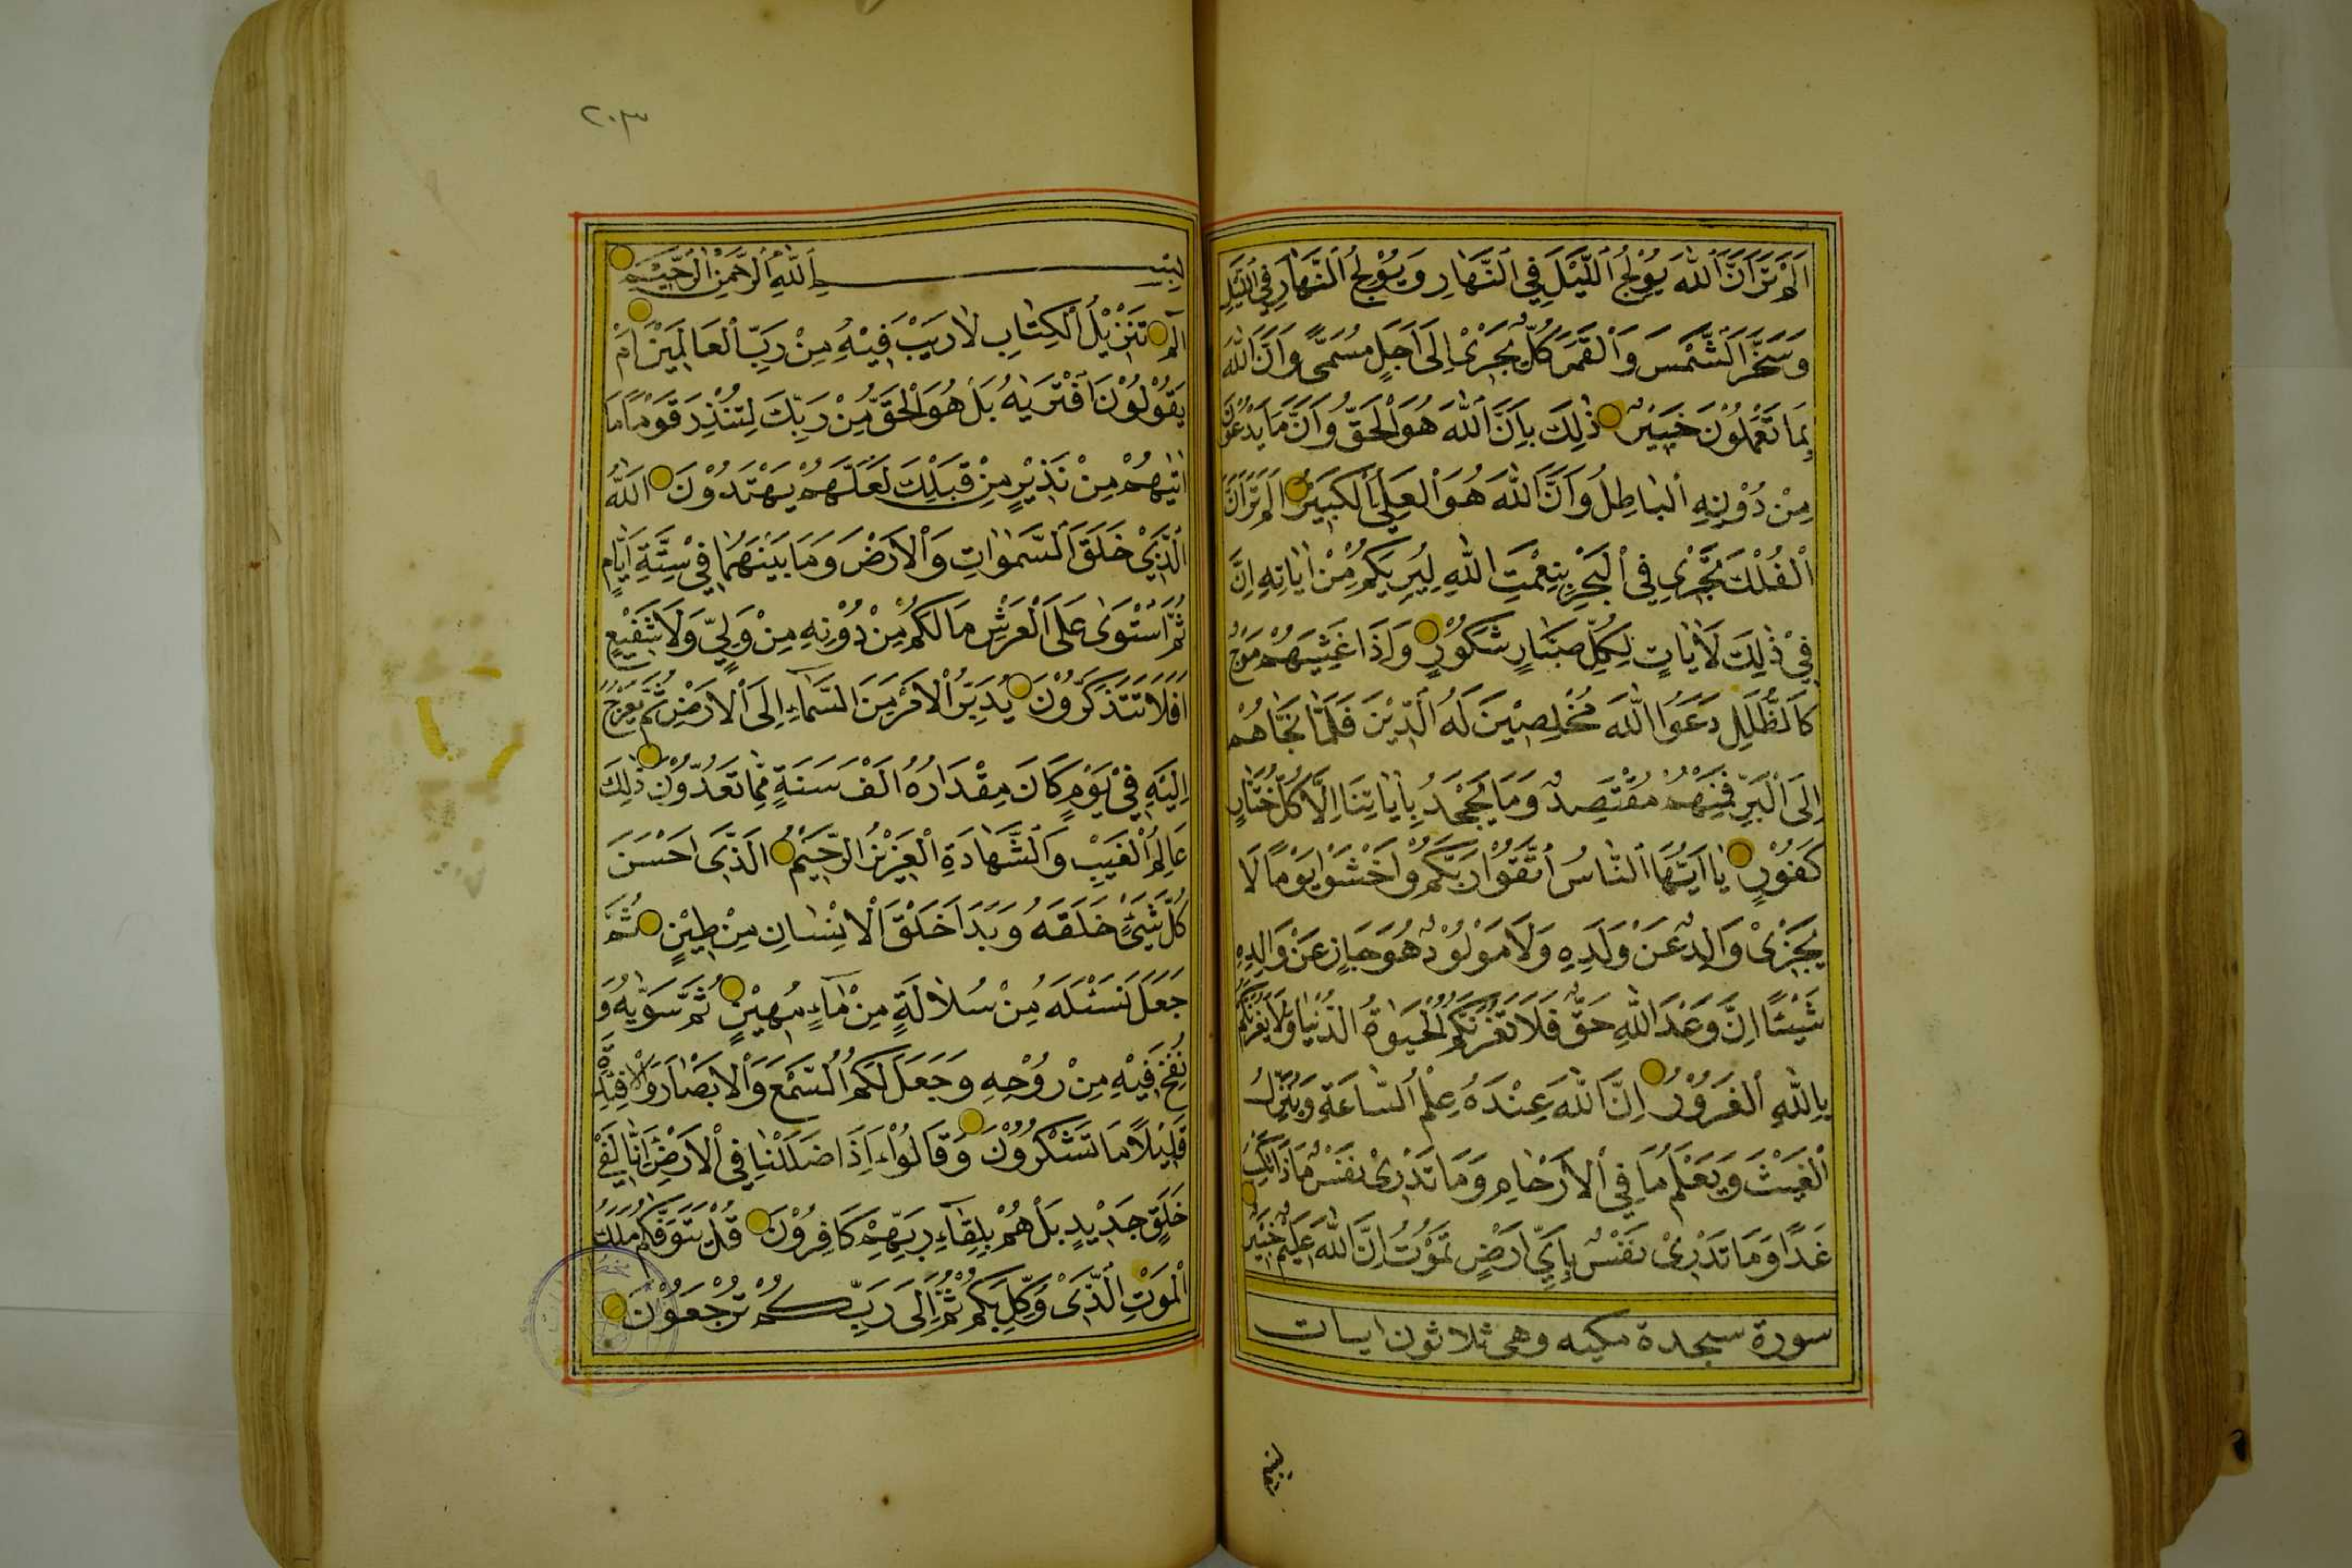 اَلَمْ تَرَ اَنَّ اللّٰهَ يُوْلِجُ الَّيْلَ فِي النَّهَارِ وَيُوْلِجُ النَّهَارَ فِي الَّيْلِ
وَسَخَّرَ الشَّمْسَ وَالْقَمَرَ كُلٌّ يَجْرِيْ اِلَى اَجَلٍ مُسَمًّى وَاَنَّ اللّٰهَ
بِمَا تَعْمَلُوْنَ خَبِيْرٌ ذٰلِكَ بِاَنَّ اللّٰهَ هُوَ الْحَقُّ وَاَنَّ مَا يَدْعُوْنَ
مِنْ دُوْنِهِ الْبَاطِلُ وَاَنَّ اللّٰهَ هُوَ الْعَلِيُّ الْكَبِيْرُ اَلَمْ تَرَ اَنَّ
الْفُلْكَ تَجْرِيْ فِي الْبَحْرِ بِنِعْمَتِ اللّٰهِ لِيُرِيَكُمْ مِنْ اٰيَاتِهِ اِنَّ
فِيْ ذٰلِكَ لَاٰيَاتٍ لِكُلِّ صَبَّارٍ شَكُوْرٍ وَاِذَا غَشِيَهُمْ مَوْجٌ
كَالظُّلَلِ دَعَوُا اللّٰهَ مُخْلِصِيْنَ لَهُ الدِّيْنَ فَلَمَّا نَجَّاهُمْ
اِلَى الْبَرِّ فَمِنْهُمْ مُقْتَصِدٌ وَمَا يَجْحَدُ بِاٰيَاتِنَا اِلَّا كُلُّ خَتَّارٍ
كَفُوْرٍ يَا اَيُّهَا النَّاسُ اتَّقُوْا رَبَّكُمْ وَاخْشَوْا يَوْمًا لَا
يَجْزِيْ وَالِدٌ عَنْ وَلَدِهِ وَلَا مَوْلُوْدٌ هُوَ جَازٍ عَنْ وَالِدِهِ
شَيْئًا اِنَّ وَعْدَ اللّٰهِ حَقٌّ فَلَا تَغُرَّنَّكُمُ الْحَيٰوةُ الدُّنْيَا وَلَا يَغُرَّنَّكُمْ
بِاللّٰهِ الْغَرُوْرُ اِنَّ اللّٰهَ عِنْدَهُ عِلْمُ السَّاعَةِ وَيُنَزِّلُ
الْغَيْثَ وَيَعْلَمُ مَا فِي الْاَرْحَامِ وَمَا تَدْرِيْ نَفْسٌ مَاذَا تَكْسِبُ
غَدًا وَمَا تَدْرِيْ نَفْسٌ بِاَيِّ اَرْضٍ تَمُوْتُ اِنَّ اللّٰهَ عَلِيْمٌ خَبِيْرٌ
سورة سجدة مكيه وهى ثلاثون ايات
٢٠٣
بِسْمِ اللّٰهِ الرَّحْمٰنِ الرَّحِيْمِ
الٓمٓ تَنْزِيْلُ الْكِتَابِ لَا رَيْبَ فِيْهِ مِنْ رَبِّ الْعَالَمِيْنَ اَمْ
يَقُوْلُوْنَ افْتَرٰيهُ بَلْ هُوَ الْحَقُّ مِنْ رَبِّكَ لِتُنْذِرَ قَوْمًا مَا
اَتٰيهُمْ مِنْ نَذِيْرٍ مِنْ قَبْلِكَ لَعَلَّهُمْ يَهْتَدُوْنَ اَللّٰهُ
الَّذِيْ خَلَقَ السَّمٰوَاتِ وَالْاَرْضَ وَمَا بَيْنَهُمَا فِيْ سِتَّةِ اَيَّامٍ
ثُمَّ اسْتَوٰى عَلَى الْعَرْشِ مَا لَكُمْ مِنْ دُوْنِهِ مِنْ وَلِيٍّ وَلَا شَفِيْعٍ
اَفَلَا تَتَذَكَّرُوْنَ يُدَبِّرُ الْاَمْرَ مِنَ السَّمَاءِ اِلَى الْاَرْضِ ثُمَّ يَعْرُجُ
اِلَيْهِ فِيْ يَوْمٍ كَانَ مِقْدَارُهُ اَلْفَ سَنَةٍ مِمَّا تَعُدُّوْنَ ذٰلِكَ
عَالِمُ الْغَيْبِ وَالشَّهَادَةِ الْعَزِيْزُ الرَّحِيْمُ الَّذِيْ اَحْسَنَ
كُلَّ شَيْئٍ خَلَقَهُ وَبَدَاَ خَلْقَ الْاِنْسَانِ مِنْ طِيْنٍ ثُمَّ
جَعَلَ نَسْلَهُ مِنْ سُلَالَةٍ مِنْ مَاءٍ مَهِيْنٍ ثُمَّ سَوّٰيهُ وَ
نَفَخَ فِيْهِ مِنْ رُوْحِهِ وَجَعَلَ لَكُمُ السَّمْعَ وَالْاَبْصَارَ وَالْاَفْئِدَةَ
قَلِيْلًا مَا تَشْكُرُوْنَ وَقَالُوْا ءَاِذَا ضَلَلْنَا فِي الْاَرْضِ ءَاِنَّا لَفِيْ
خَلْقٍ جَدِيْدٍ بَلْ هُمْ بِلِقَاءِ رَبِّهِمْ كَافِرُوْنَ قُلْ يَتَوَفّٰكُمْ مَلَكُ
الْمَوْتِ الَّذِيْ وُكِّلَ بِكُمْ ثُمَّ اِلَى رَبِّكُمْ تُرْجَعُوْنَ